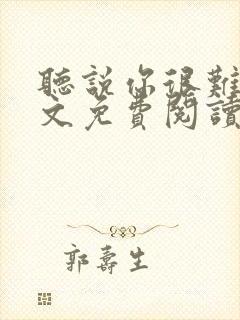 聽説你很難
文免費閱讀
郭壽生